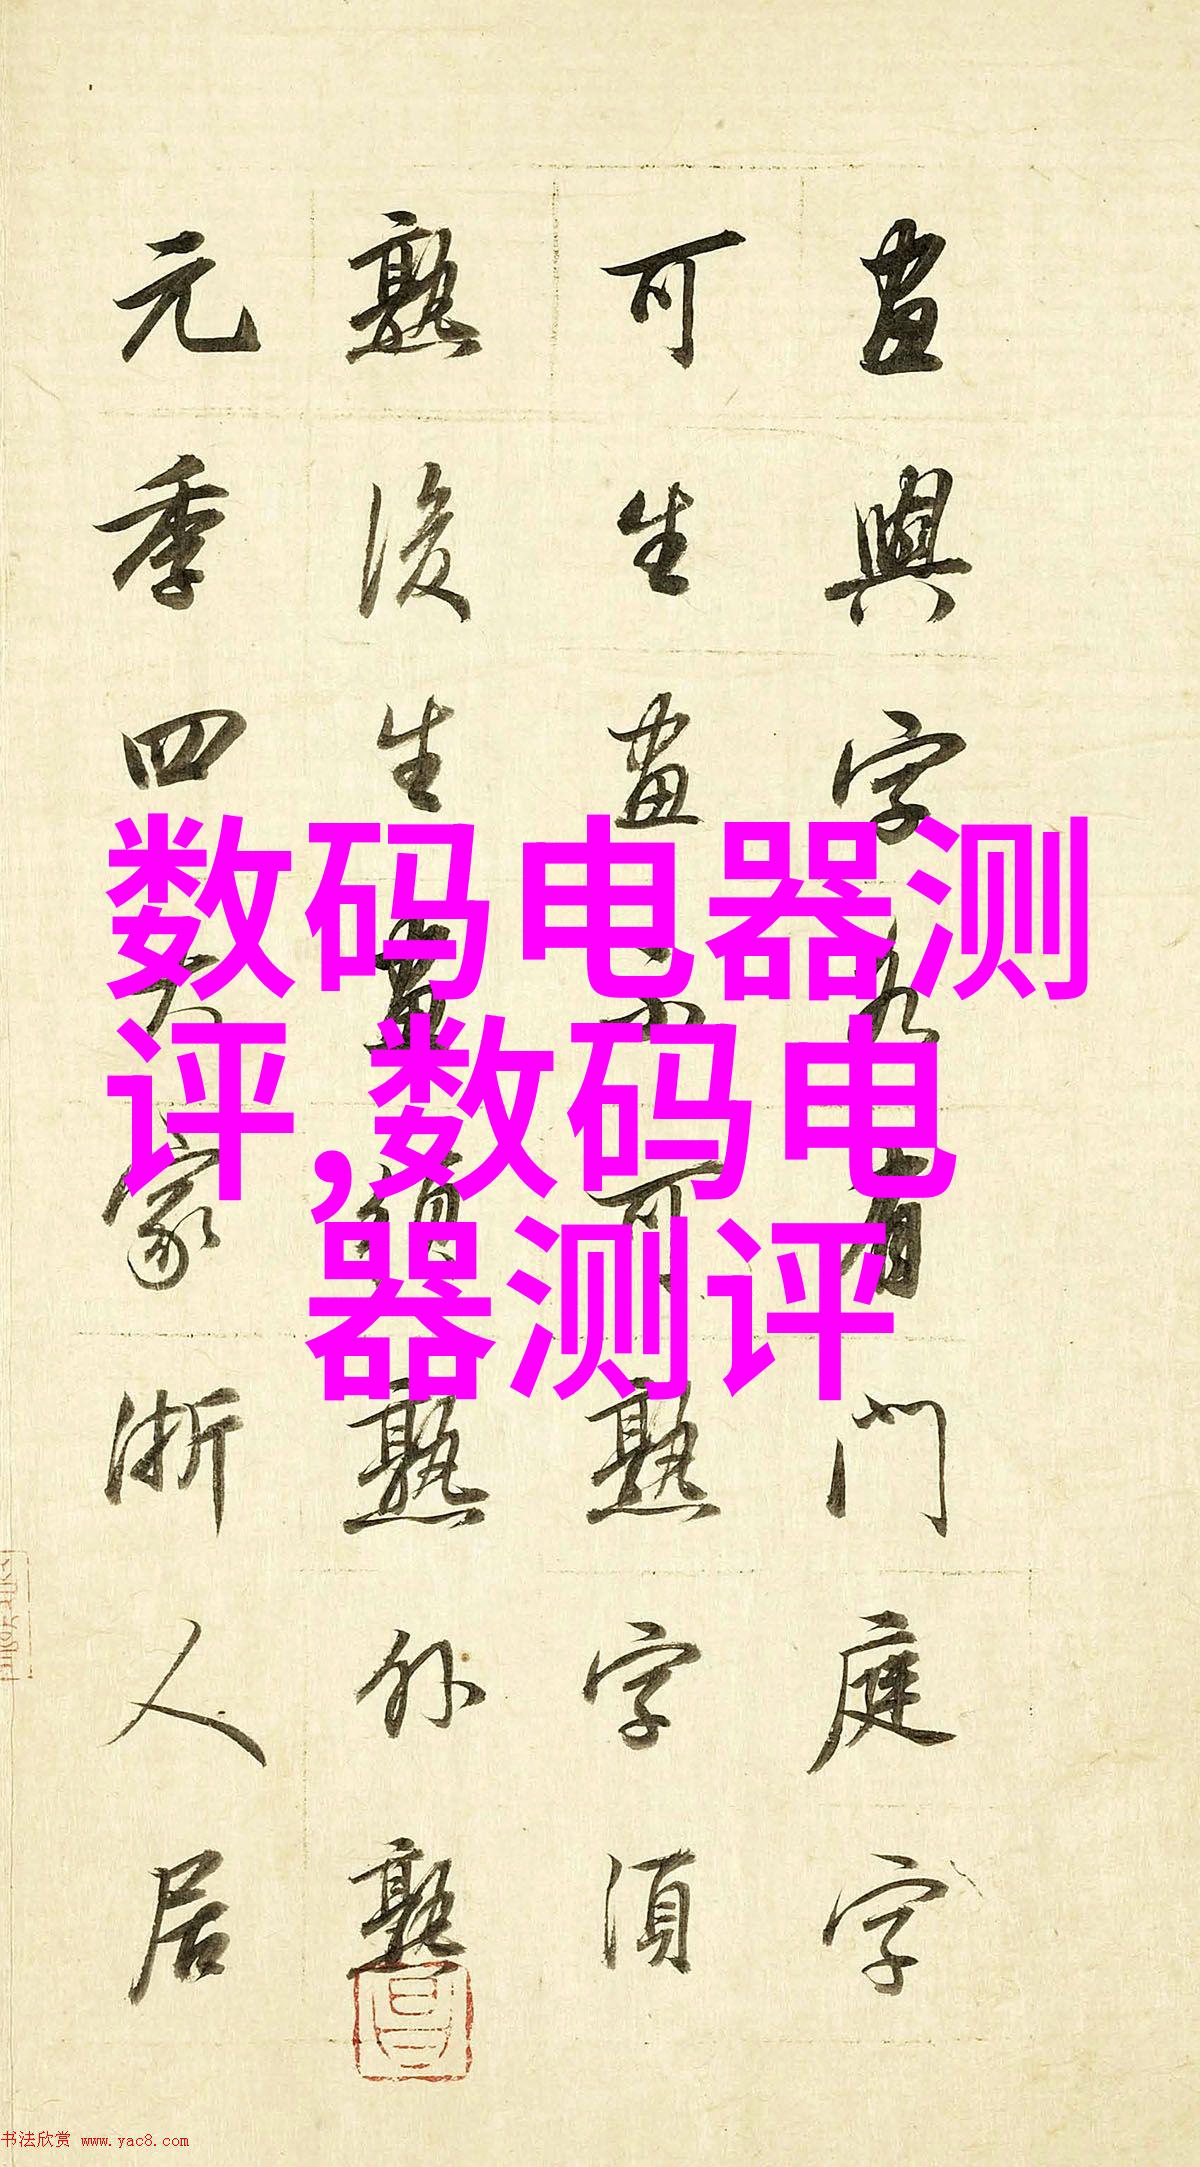 畫與字各有門庭字
可生畫不可熟字須
熟後生畫須熟外熟
元季四大家浙人居
数码电器测
评,数码电
器测评
书法欣赏 www.yac8.com